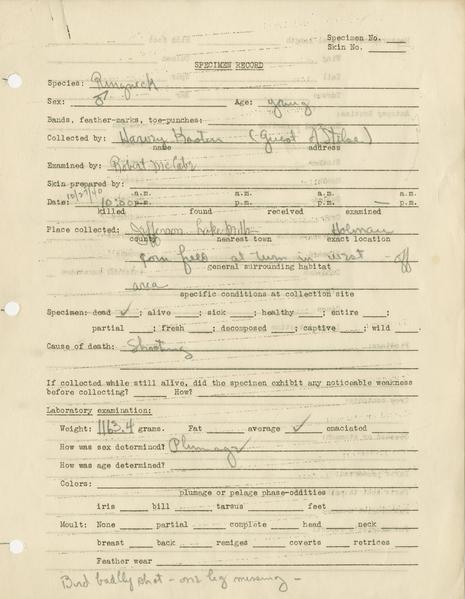 Specimen No.
Skin No.
SPECIMEN RECORD
Species: Ringneck
Sex: ♂ Age: young
Bands, feather-marks, toe-punches:
Collected by: Harvey (Guest of Stiloe)
name address
Examined by: Robert McCabe
Skin prepared by:
10/27/40 a.m. a.m. a.m. a.m.
Date: 10:00 p.m. p.m. p.m. — p.m.
killed found received examined
Place collected: Jefferson Lake Mills Holman
county nearest town exact location
corn field at turn in west - off
general surrounding habitat
area
specific conditions at collection site
Specimen: dead ✓; alive ; sick ; healthy ; entire ;
partial ; fresh ; decomposed ; captive ; wild .
Cause of death: Shooting
If collected while still alive, did the specimen exhibit any noticeable weakness
before collecting? How?
Laboratory examination:
Weight: 1163.4 grams. Fat average ✓ emaciated
How was sex determined? Plumage
How was age determined?
Colors:
plumage or pelage phase-oddities
iris bill tarsus feet
Moult: None partial complete head neck
breast back remiges coverts retrices
Feather wear
Bird badly shot - one leg missing -